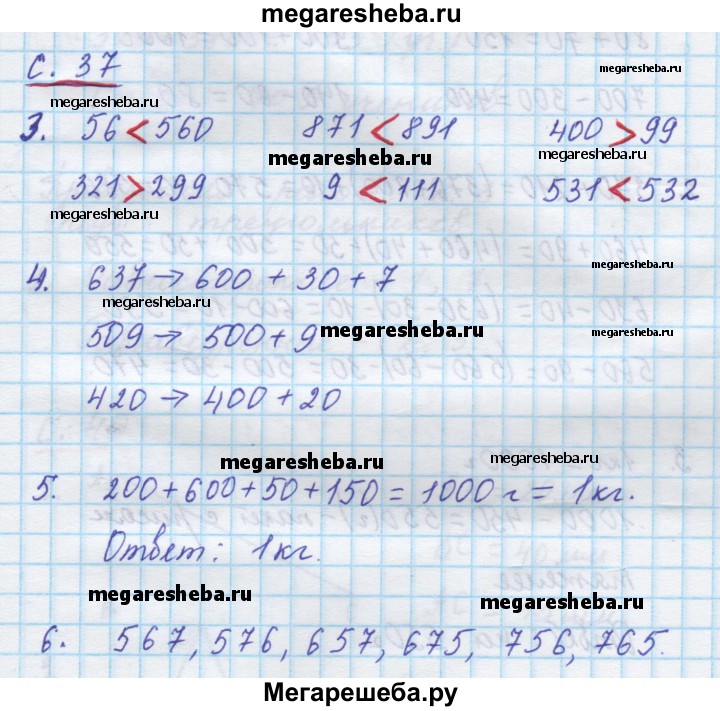 megaresheba.ru
с. 37
megaresheba.ru
megaresheba.ru
3. 56 < 560 871 < 891 400 > 99
megaresheba.ru megaresheba.ru
321 > 299 9 < 111 531 < 532
4. 637 → 600 + 30 + 7
megaresheba.ru megaresheba.ru
509 → 500 + 9 megaresheba.ru
megaresheba.ru
420 → 400 + 20
megaresheba.ru megaresheba.ru
5. 200 + 600 + 50 + 150 = 1000 г = 1 кг.
Ответ: 1 кг.
megaresheba.ru megaresheba.ru
6. 567, 576, 657, 675, 756, 765.
Мегарешеба.ру